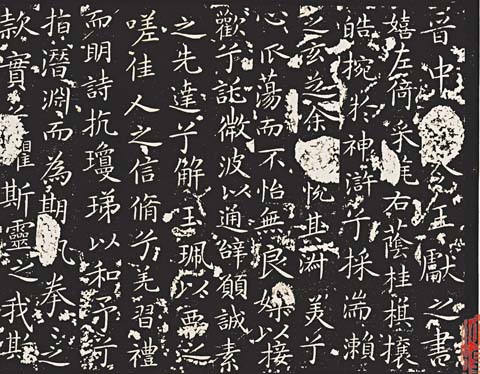 晉中令王獻之書
嬉左倚采旄右蔭桂棋攘
皓捥於神滸兮採湍瀨
之玄芝余悅其淑美兮
心爪蕩而不怡無良媒以接
歡兮託微波以通辭願誠素
之先達兮解玉珮以要之
嗟佳人之信脩兮羌習禮
而明詩抗瓊珶以和予兮
指潛淵而為期執拳之
款實兮懼斯靈之我斯